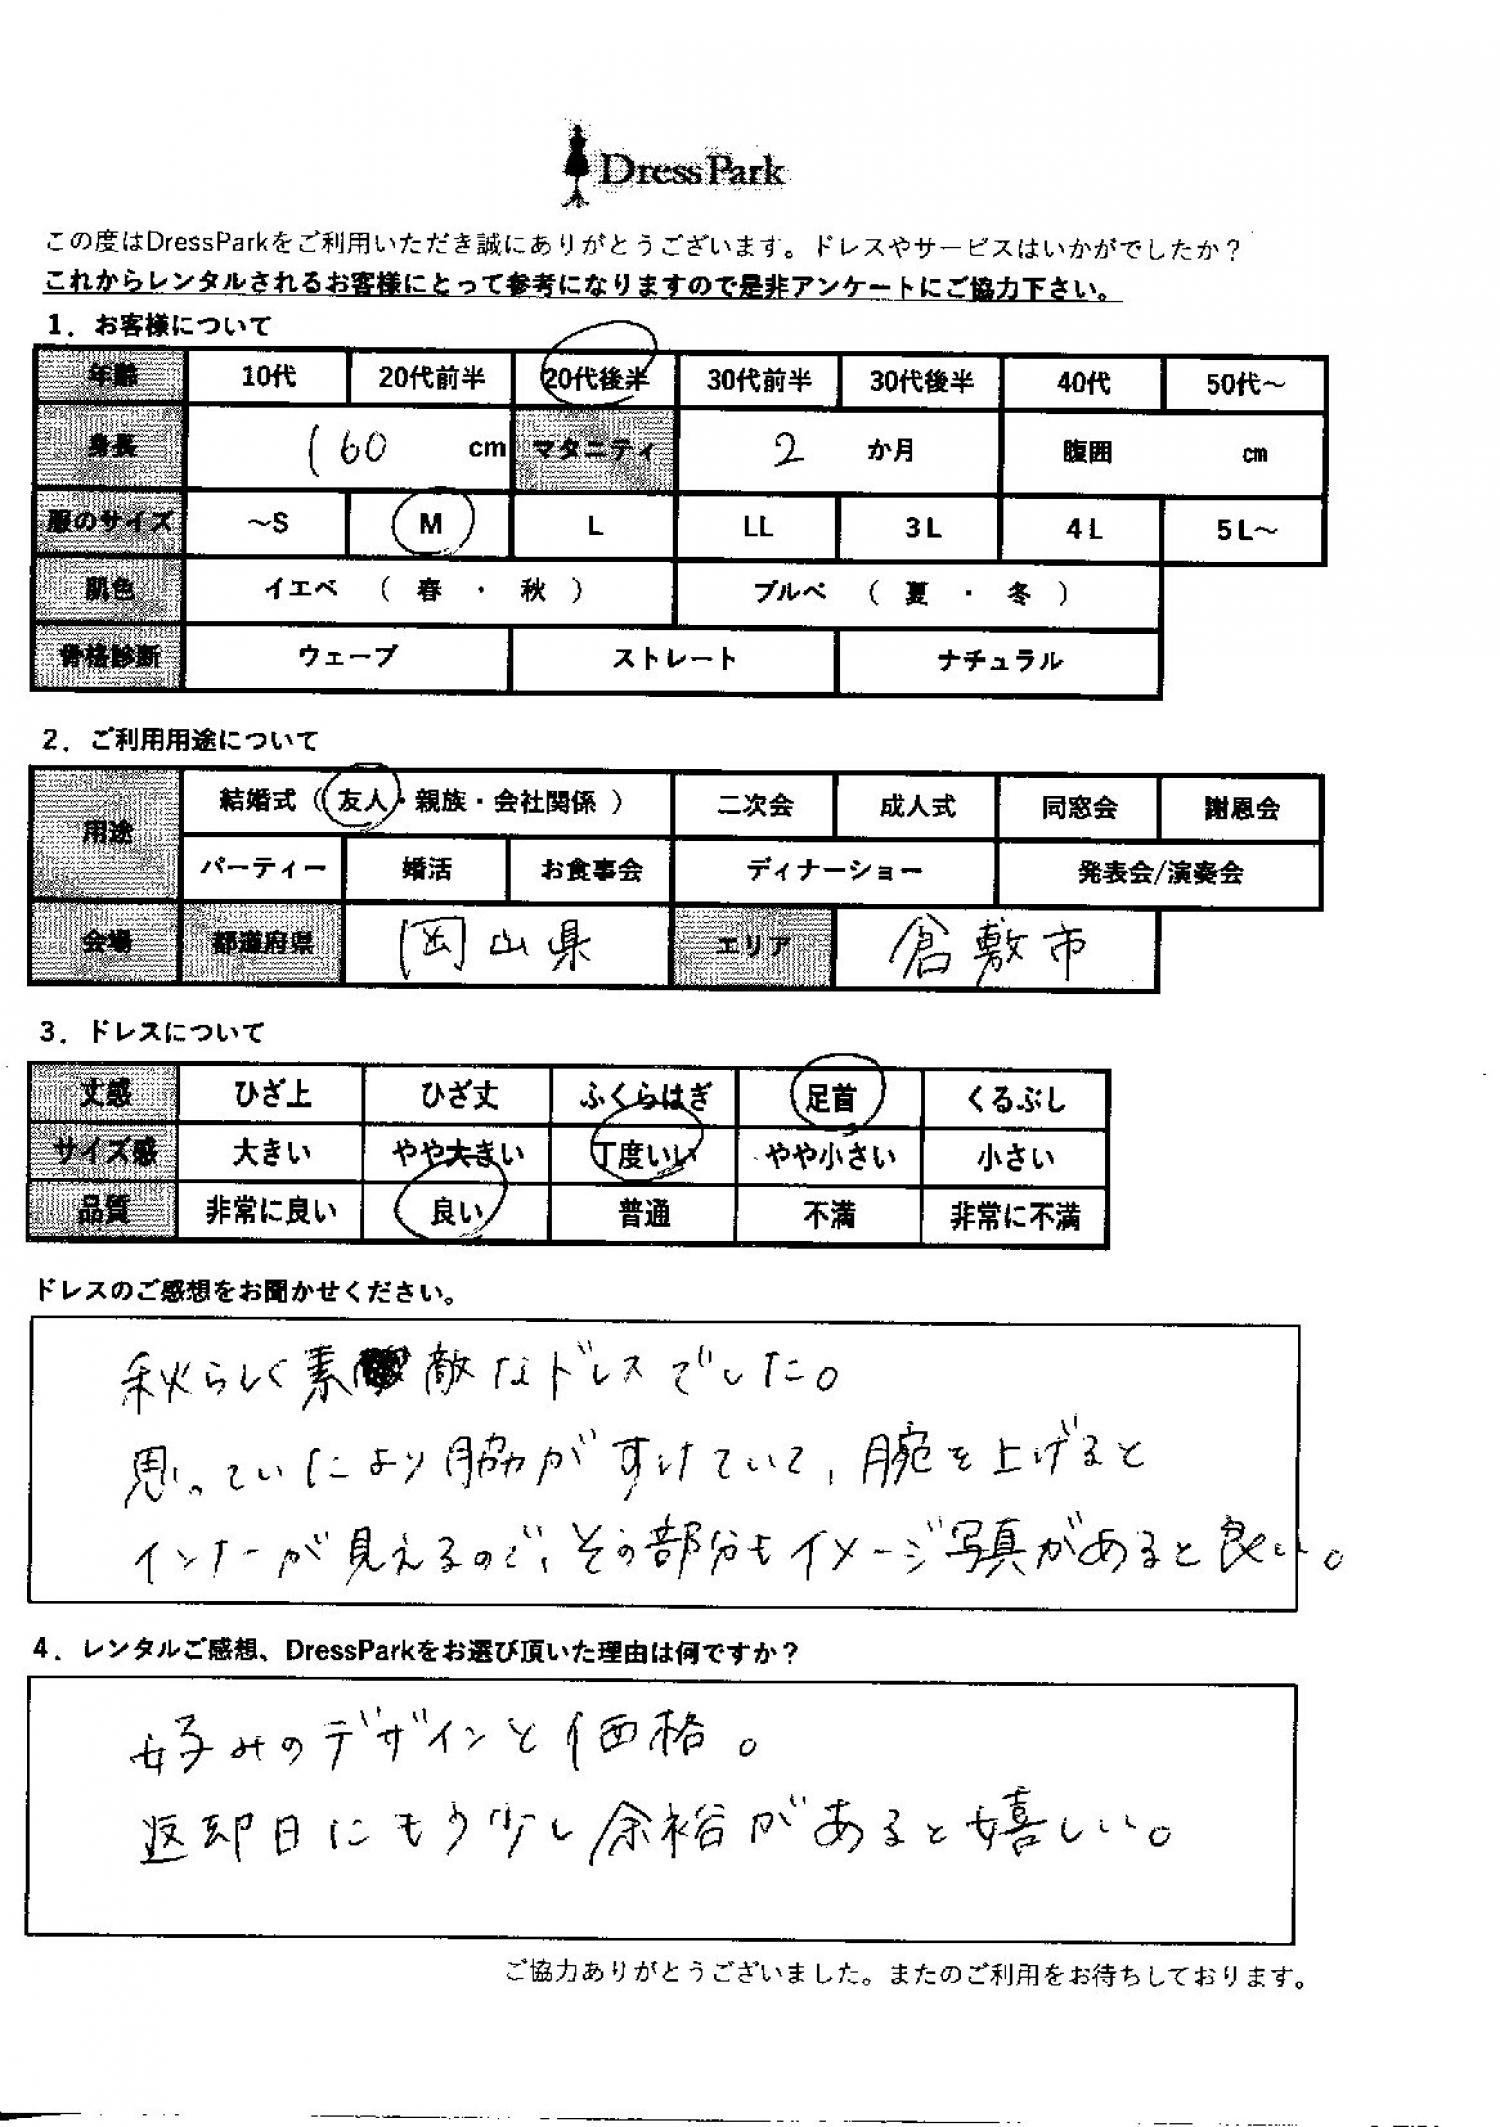 DressPark
この度はDressParkをご利用いただき誠にありがとうございます。ドレスやサービスはいかがでしたか？
これからレンタルされるお客様にとって参考になりますので是非アンケートにご協力下さい。
1．お客様について
年齢 10代 20代前半 20代後半 30代前半 30代後半 40代 50代～
身長 160 cm マタニティ 2 か月 腹囲 cm
服のサイズ ～S M L LL 3L 4L 5L～
肌色 イエベ （ 春 ・ 秋 ） ブルベ （ 夏 ・ 冬 ）
骨格診断 ウェーブ ストレート ナチュラル
2．ご利用用途について
用途 結婚式（友人・親族・会社関係） 二次会 成人式 同窓会 謝恩会
パーティー 婚活 お食事会 ディナーショー 発表会/演奏会
会場 都道府県 岡山県 エリア 倉敷市
3．ドレスについて
丈感 ひざ上 ひざ丈 ふくらはぎ 足首 くるぶし
サイズ感 大きい やや大きい 丁度いい やや小さい 小さい
品質 非常に良い 良い 普通 不満 非常に不満
ドレスのご感想をお聞かせください。
秋らしく素敵なドレスでした。
思っていたより脇がすけていて、腕を上げると
インナーが見えるので、その部分もイメージ写真があると良い。
4．レンタルご感想、DressParkをお選び頂いた理由は何ですか？
好みのデザインと価格。
返却日にもう少し余裕があると嬉しい。
ご協力ありがとうございました。またのご利用をお待ちしております。